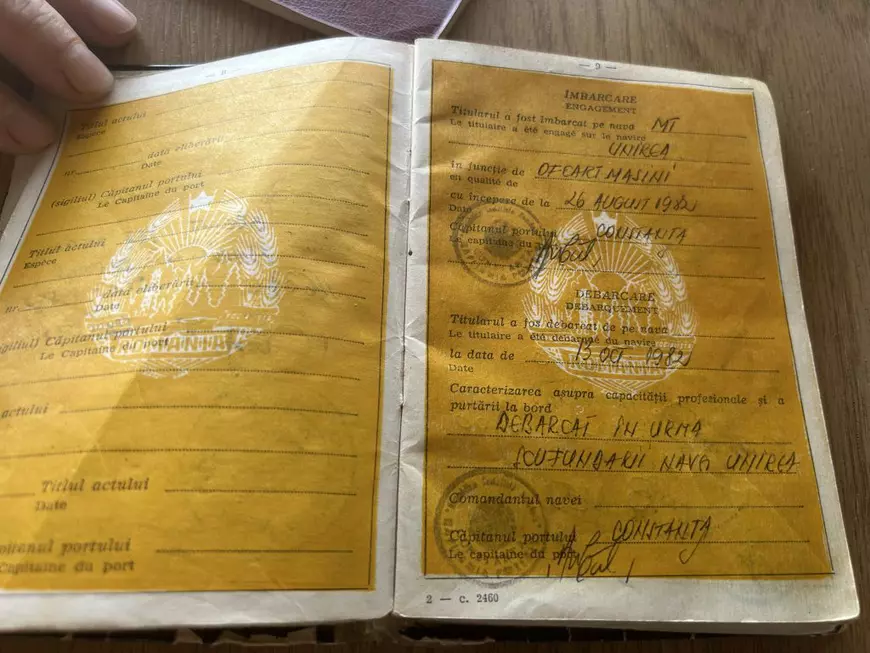 Titlul actului
Espèce
nr. data eliberării
Date
(sigiliul) Căpitanul portului
Le Capitaine du port
Titlul actului
Espèce
nr. data eliberării
Date
(sigiliul) Căpitanul portului
Le Capitaine du port
ROMANIA
actului
Titlul actului
Date
portului
Capitaine du port
— 9 —
ÎMBARCARE
ENGAGEMENT
Titularul a fost îmbarcat pe nava MT
Le titulaire a été engagé sur le navire
UNIREA
în funcție de OF CART MASINI
en qualité de
cu începere de la 26 AUGUST 1982
Date
Căpitanul portului CONSTANTA
Le capitaine du port
DEBARCARE
DEBARQUEMENT
Titularul a fost debarcat de pe nava
Le titulaire a été débarqué du navire
la data de 13 OCT 1982
Date
Caracterizarea asupra capacității profesionale și a
purtării la bord
DEBARCAT ÎN URMA
SCUFUNDARII NAVA UNIREA
Comandantul navei
Căpitanul portului CONSTANTA
Le capitaine du port
2 — c. 2460